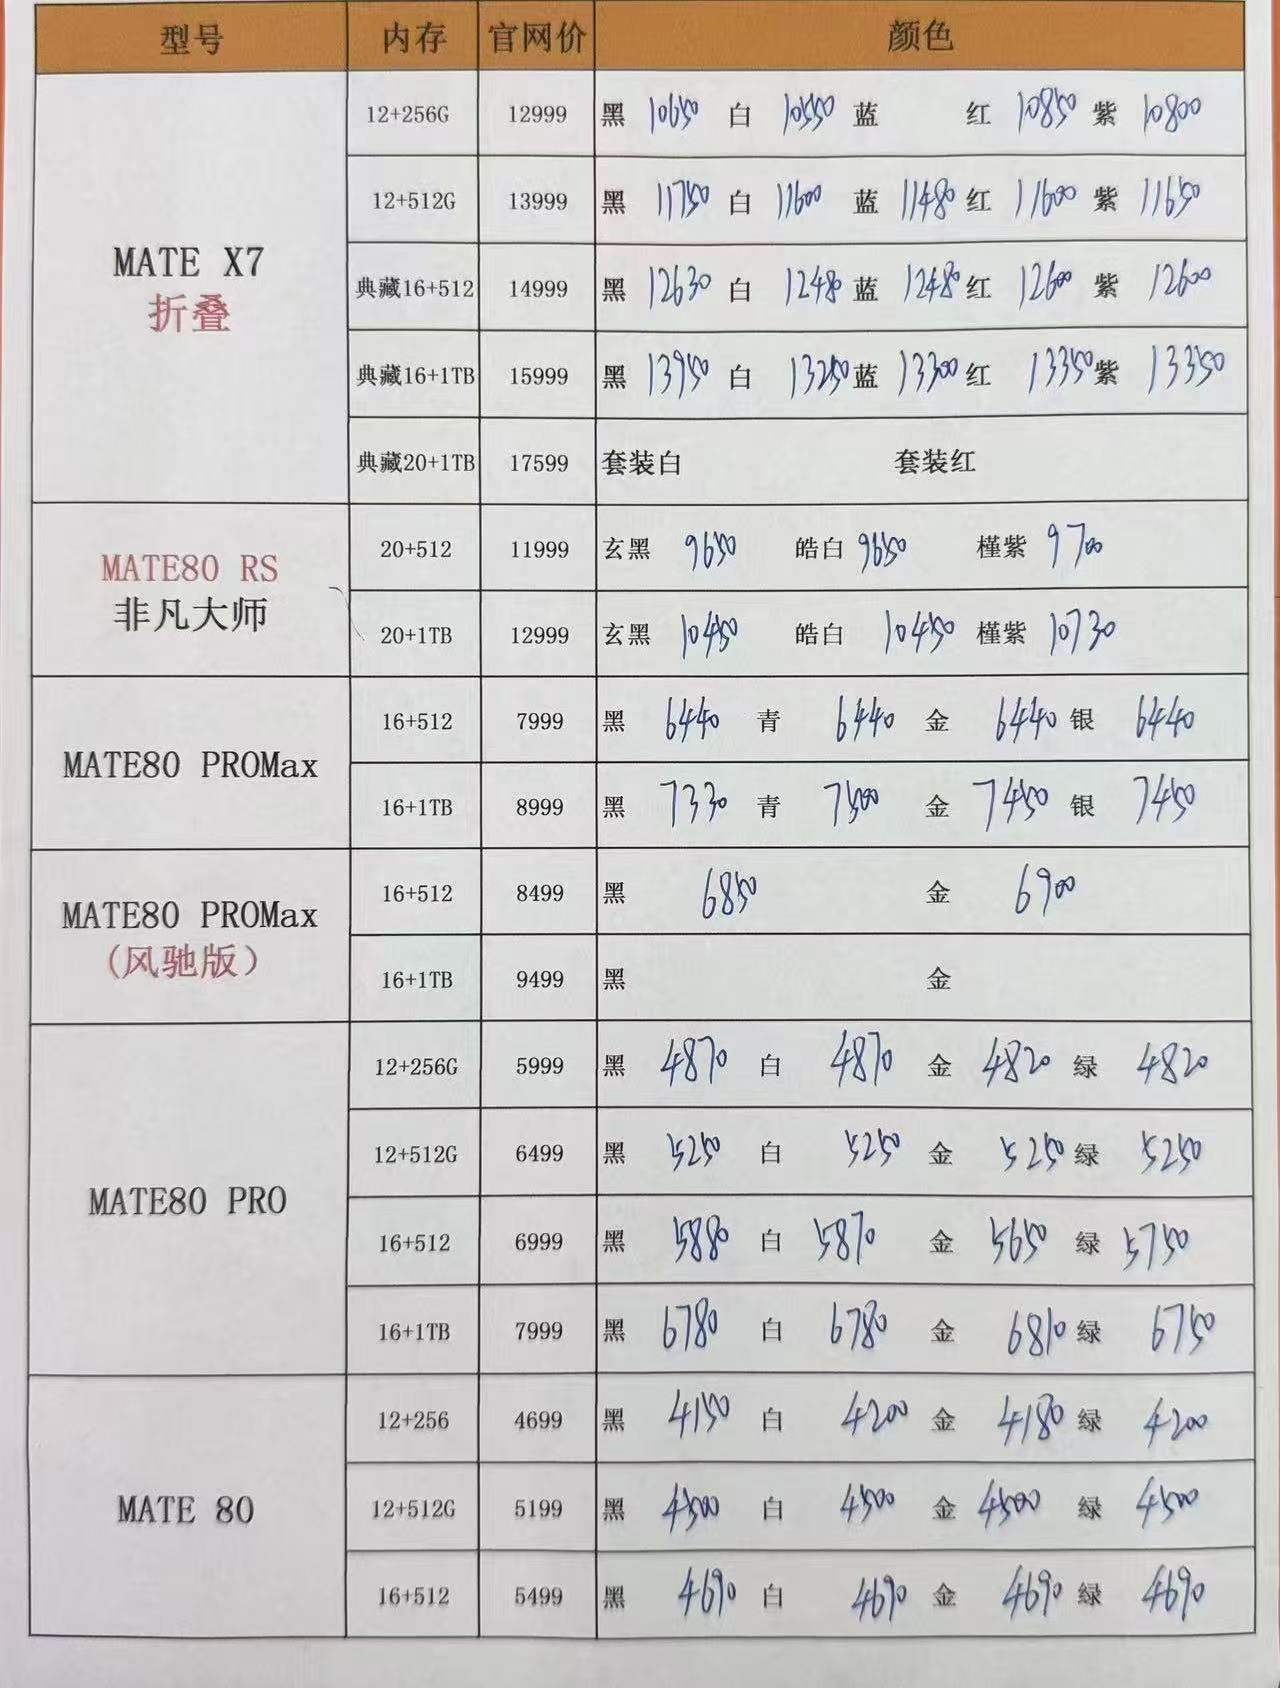 型号 内存 官网价 颜色
12+256G 12999 黑 10650 白 10550 蓝 红 10850 紫 10800
12+512G 13999 黑 11750 白 11600 蓝 11480 红 11600 紫 11650
MATE X7
折叠
典藏16+512 14999 黑 12630 白 12480 蓝 12480 红 12600 紫 12600
典藏16+1TB 15999 黑 13950 白 13250 蓝 13300 红 13350 紫 13350
典藏20+1TB 17599 套装白 套装红
MATE80 RS
非凡大师
20+512 11999 玄黑 9650 皓白 9650 槿紫 9700
20+1TB 12999 玄黑 10450 皓白 10450 槿紫 10730
MATE80 PROMax
16+512 7999 黑 6440 青 6440 金 6440 银 6440
16+1TB 8999 黑 7330 青 7500 金 7450 银 7450
MATE80 PROMax
(风驰版)
16+512 8499 黑 6850 金 6900
16+1TB 9499 黑 金
MATE80 PRO
12+256G 5999 黑 4870 白 4870 金 4820 绿 4820
12+512G 6499 黑 5250 白 5250 金 5250 绿 5250
16+512 6999 黑 5880 白 5870 金 5650 绿 5750
16+1TB 7999 黑 6780 白 6780 金 6810 绿 6750
MATE 80
12+256 4699 黑 4150 白 4200 金 4180 绿 4200
12+512G 5199 黑 4500 白 4500 金 4500 绿 4500
16+512 5499 黑 4690 白 4690 金 4690 绿 4690